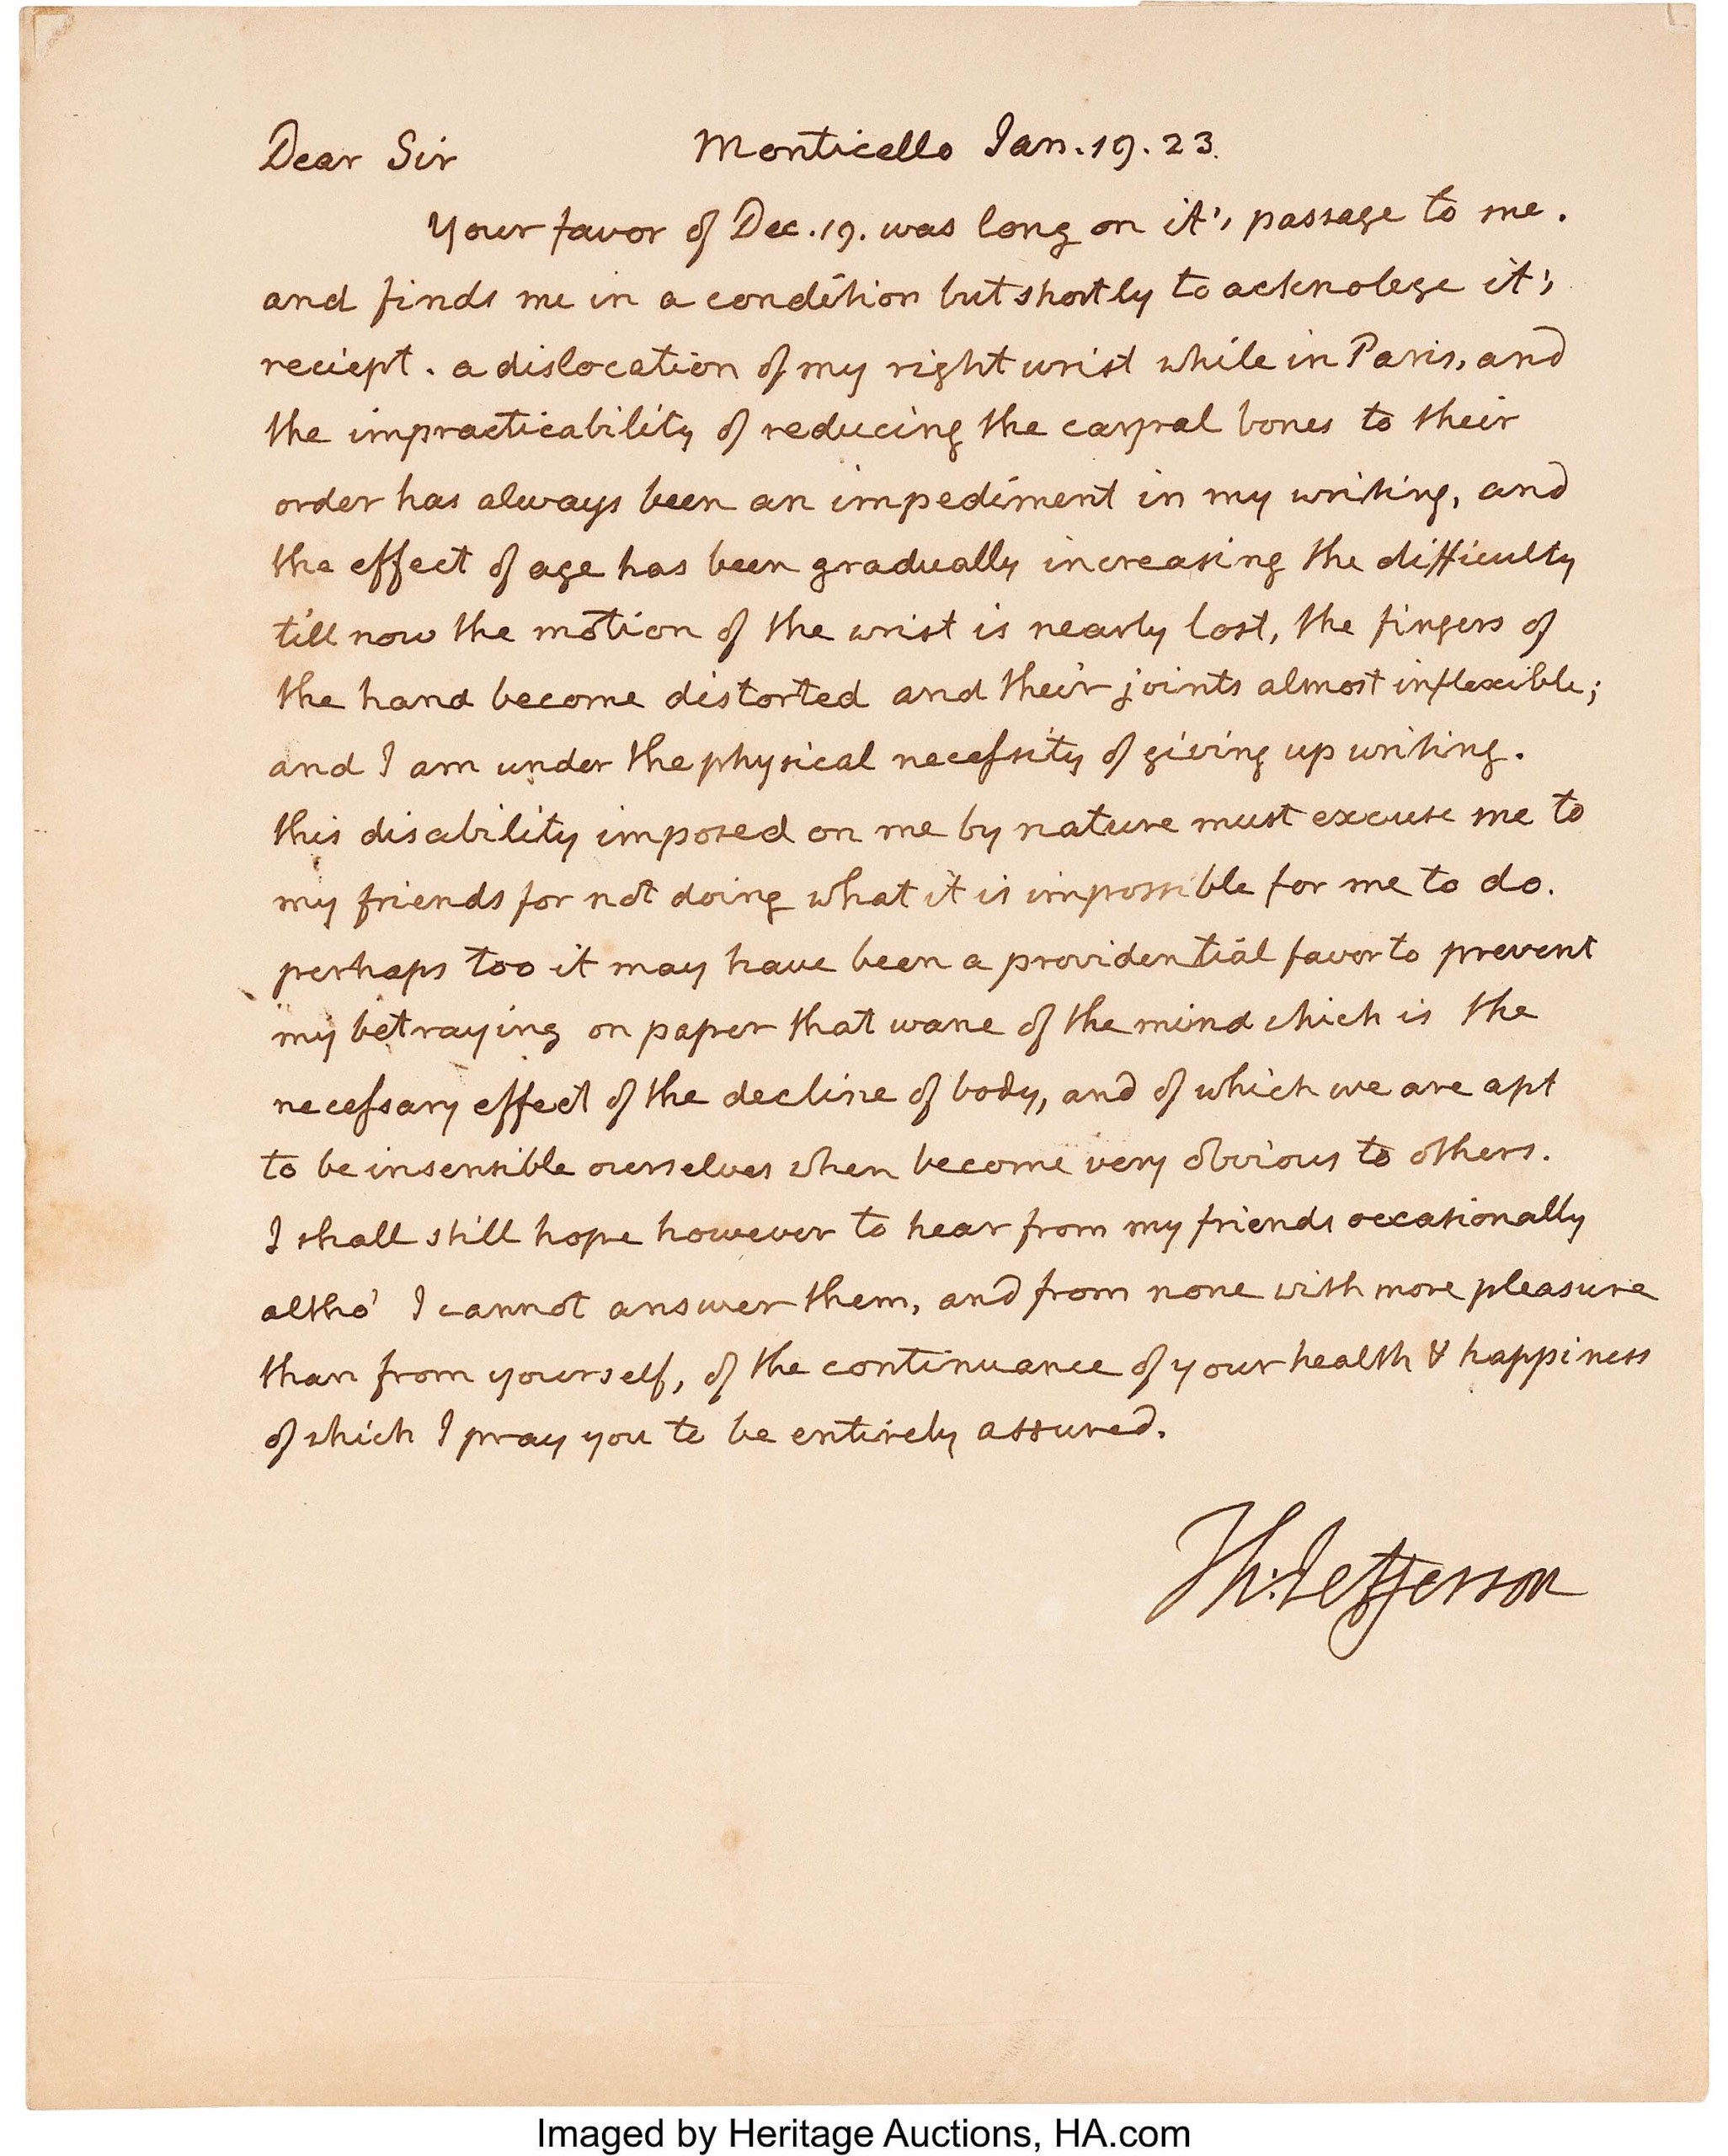 Dear Sir Monticello Jan. 19. 23.
Your favor of Dec. 19. was long on it's passage to me.
and finds me in a condition but shortly to acknolege it's
reciept. a dislocation of my right wrist while in Paris, and
the impracticability of reducing the carpal bones to their
order has always been an impediment in my writing, and
the effect of age has been gradually increasing the difficulty
till now the motion of the wrist is nearly lost, the fingers of
the hand become distorted and their joints almost inflexible;
and I am under the physical necessity of giving up writing.
this disability imposed on me by nature must excuse me to
my friends for not doing what it is impossible for me to do.
perhaps too it may have been a providential favor to prevent
my betraying on paper that wane of the mind which is the
necessary effect of the decline of body, and of which we are apt
to be insensible ourselves when become very obvious to others.
I shall still hope however to hear from my friends occasionally
altho' I cannot answer them, and from none with more pleasure
than from yourself, of the continuance of your health & happiness
of which I pray you to be entirely assured.
Th: Jefferson
Imaged by Heritage Auctions, HA.com